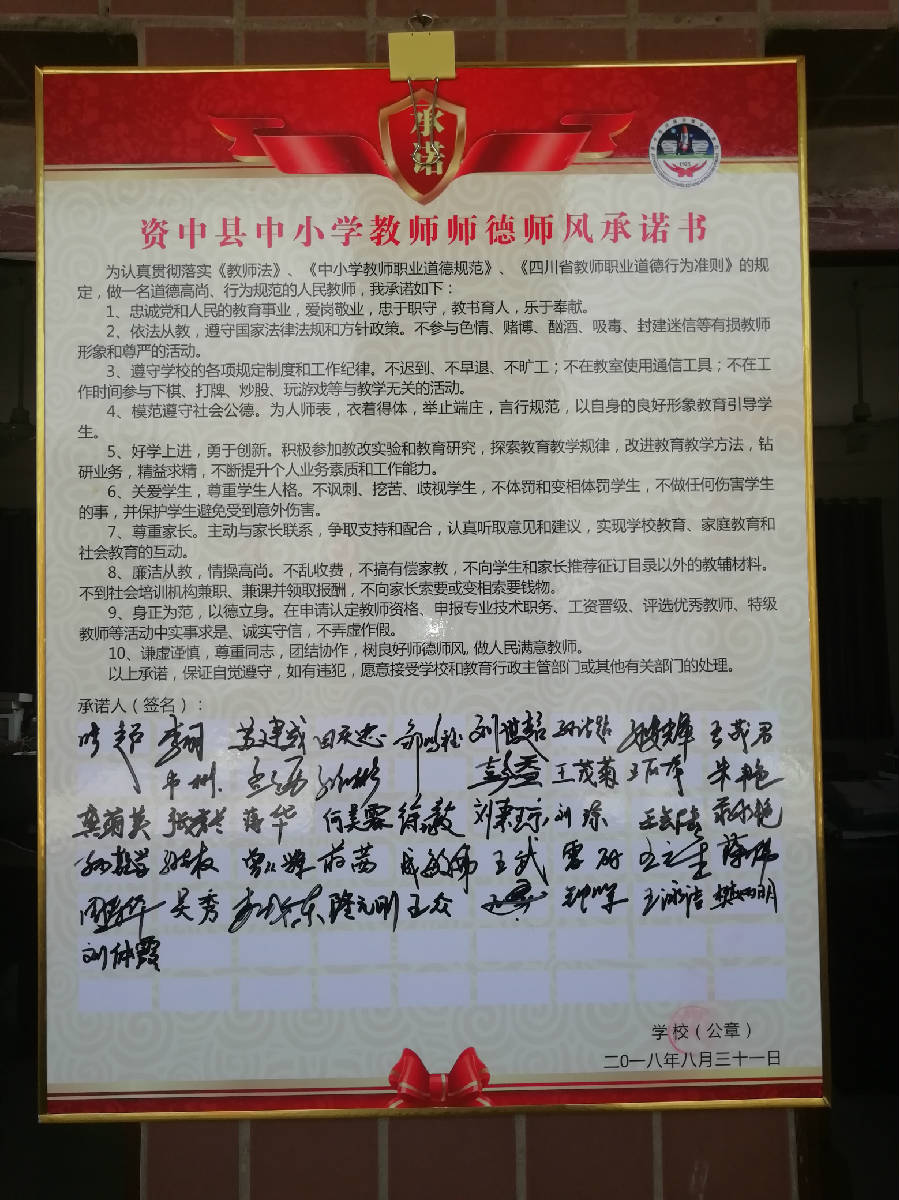 承
诺
1925
资中县中小学教师师德师风承诺书
为认真贯彻落实《教师法》、《中小学教师职业道德规范》、《四川省教师职业道德行为准则》的规
定，做一名道德高尚、行为规范的人民教师，我承诺如下：
1、忠诚党和人民的教育事业，爱岗敬业，忠于职守，教书育人，乐于奉献。
2、依法从教，遵守国家法律法规和方针政策。不参与色情、赌博、酗酒、吸毒、封建迷信等有损教师
形象和尊严的活动。
3、遵守学校的各项规定制度和工作纪律。不迟到、不早退、不旷工；不在教室使用通信工具；不在工
作时间参与下棋、打牌、炒股、玩游戏等与教学无关的活动。
4、模范遵守社会公德。为人师表，衣着得体，举止端庄，言行规范，以自身的良好形象教育引导学
生。
5、好学上进，勇于创新。积极参加教改实验和教育研究，探索教育教学规律，改进教育教学方法，钻
研业务，精益求精，不断提升个人业务素质和工作能力。
6、关爱学生，尊重学生人格。不讽刺、挖苦、歧视学生，不体罚和变相体罚学生，不做任何伤害学生
的事，并保护学生避免受到意外伤害。
7、尊重家长。主动与家长联系，争取支持和配合，认真听取意见和建议，实现学校教育、家庭教育和
社会教育的互动。
8、廉洁从教，情操高尚。不乱收费，不搞有偿家教，不向学生和家长推荐征订目录以外的教辅材料。
不到社会培训机构兼职、兼课并领取报酬，不向家长索要或变相索要钱物。
9、身正为范，以德立身。在申请认定教师资格、申报专业技术职务、工资晋级、评选优秀教师、特级
教师等活动中实事求是、诚实守信，不弄虚作假。
10、谦虚谨慎，尊重同志，团结协作，树良好师德师风,做人民满意教师。
以上承诺，保证自觉遵守，如有违犯，愿意接受学校和教育行政主管部门或其他有关部门的处理。
承诺人（签名）：
李丽 苏建成 田庆忠 王茂君
王茂菊 朱艳
蒋华 何美霖 徐敏 刘琼
蒋茜 王武
吴秀 隆元刚 王众 王泳洁
刘体霞
学校（公章）
二0一八年八月三十一日